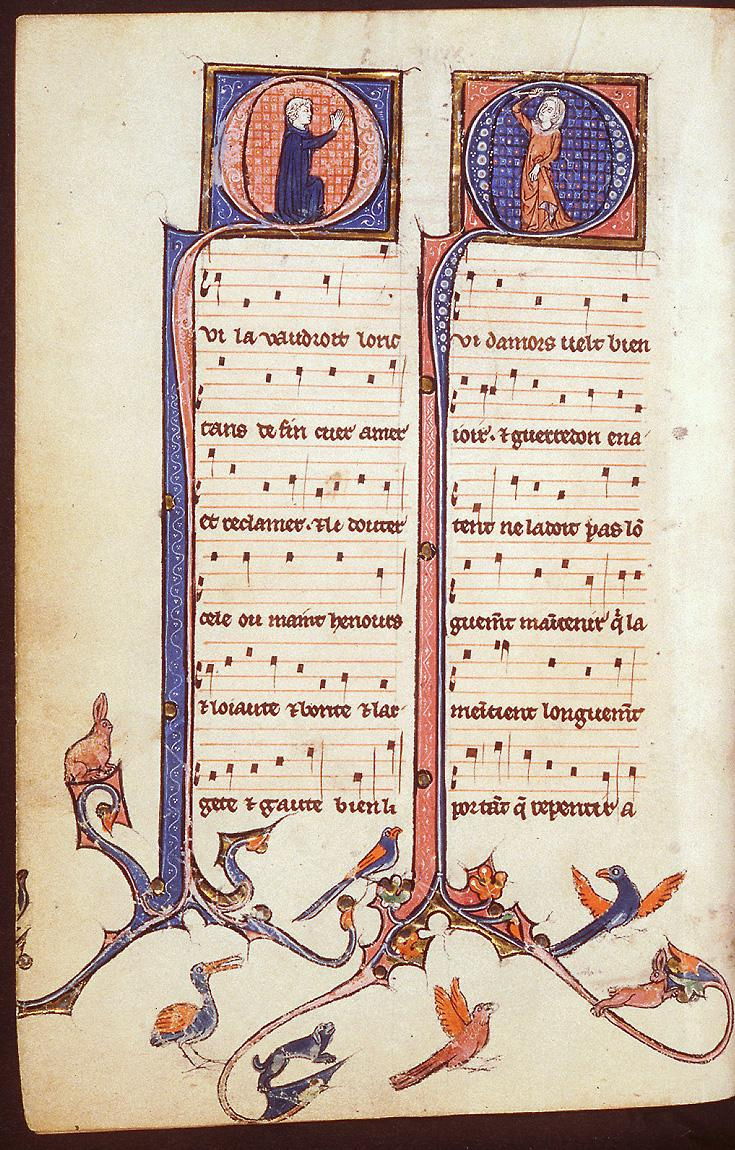 Q
vi la vaudroit lonc
tans de fin cuer amer
et reclamer. ⁊ le douter
cele ou maint honours
⁊ loiaute ⁊ bonte ⁊ lar
gete ⁊ gaute bien li
Q
vi damors uelt bien
ioir. ⁊ guerredon ena
tent ne ladoit pas lō
guem̄t maītenir q̄ la
meītient longuem̄t
portāt q̄ repentir a